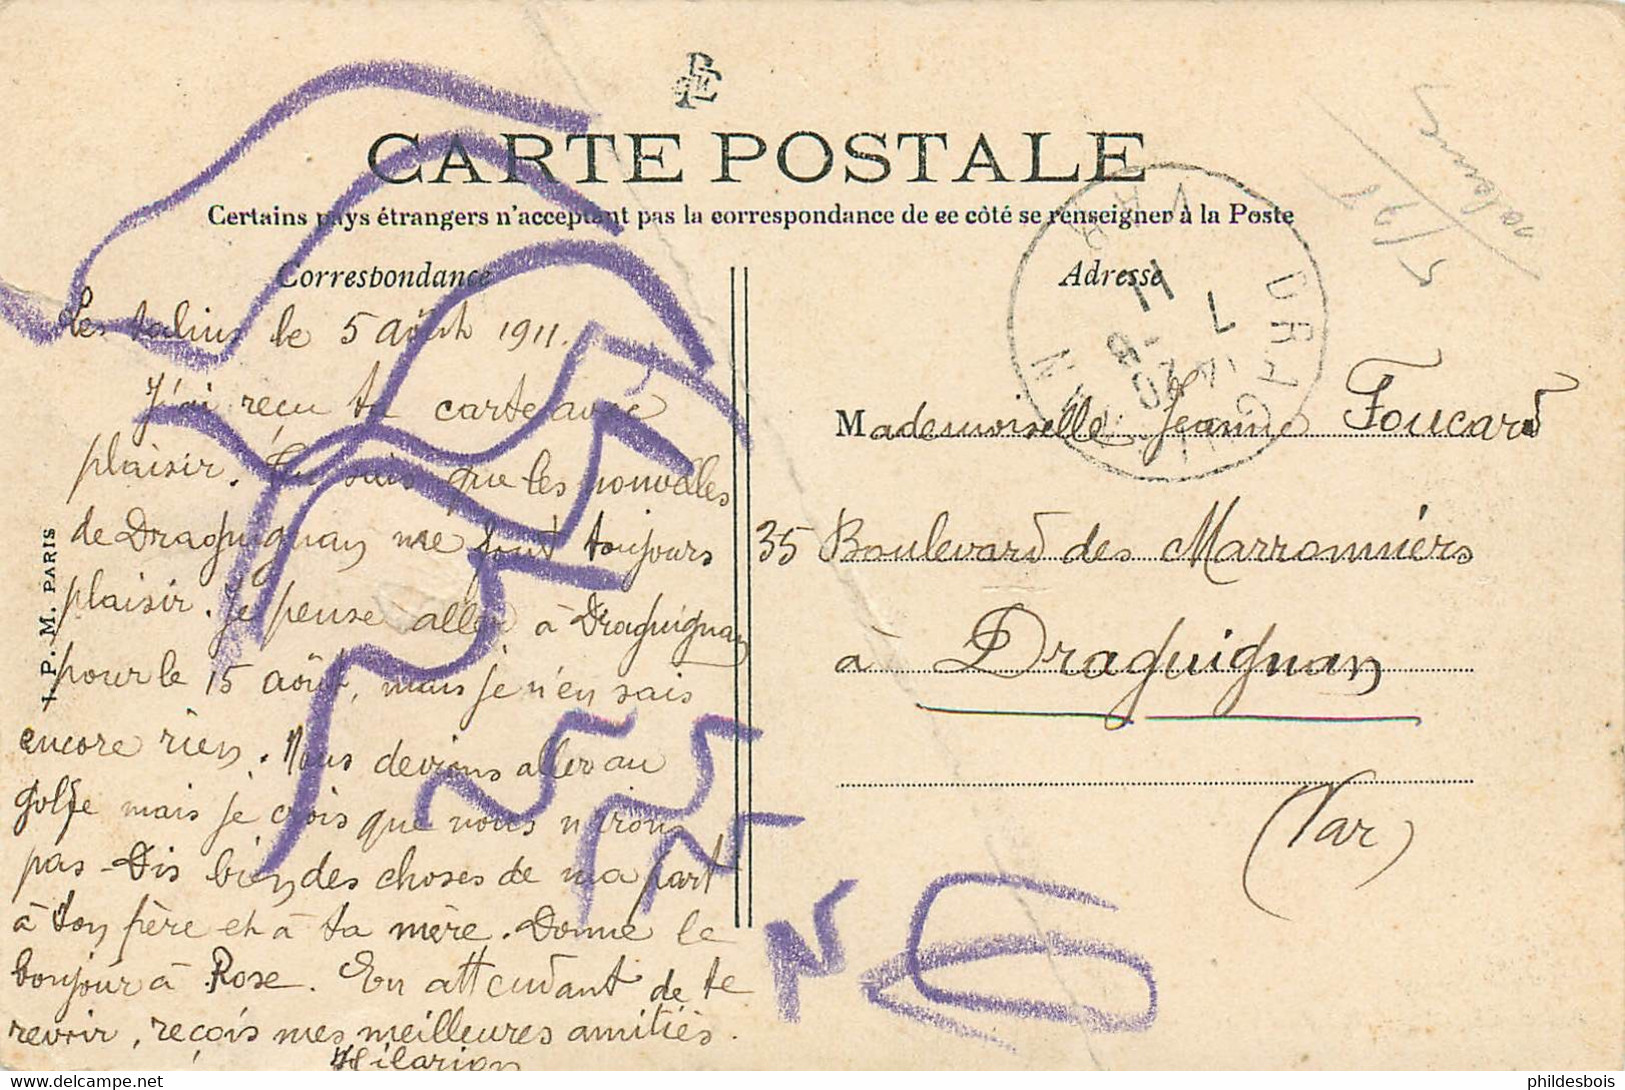 CARTE POSTALE
Certains pays étrangers n'acceptant pas la correspondance de ce côté se renseigner à la Poste
Correspondance
Adresse
Les Salins le 5 août 1911.
J'ai reçu ta carte avec
plaisir. Tu sais que les nouvelles
de Draguignan me font toujours
plaisir. Je pense aller à Draguignan
pour le 15 août, mais je n'en sais
encore rien. Nous devions aller au
golfe mais je crois que nous n'irons
pas - Dis bien des choses de ma part
à ton père et à ta mère. Donne le
bonjour à Rose. En attendant de te
revoir, reçois mes meilleures amitiés.
Hilarion
Mademoiselle Jeanne Foucard
35 Boulevard des Marronniers
à Draguignan
(Var)
DRAGUIGNAN
VAR
7 - 8
11
I. P. M. PARIS
phildesbois